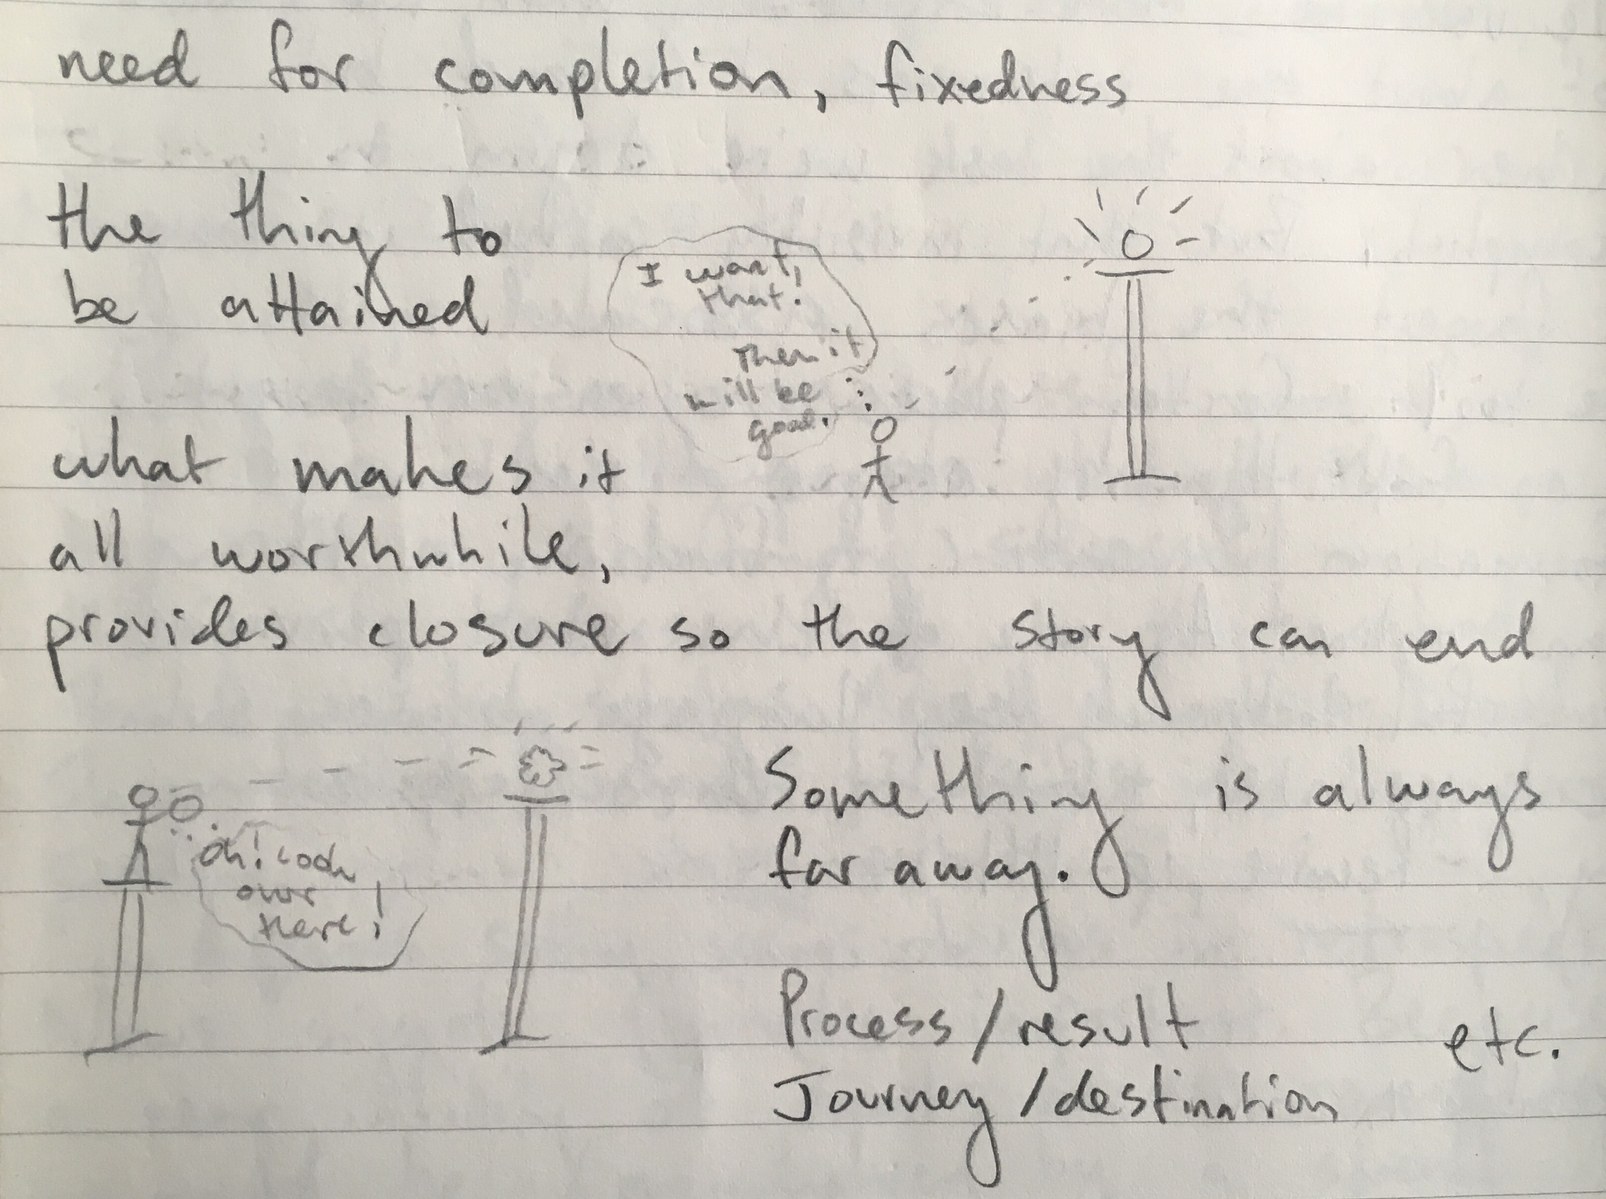 need for completion, fixedness
the thing to
be attained
I want
that.
Then it
will be
good.
what makes it
all worthwhile,
provides closure so the story can end
Oh! Look
over
there!
Something is always
far away.
Process/result
etc.
Journey/destination